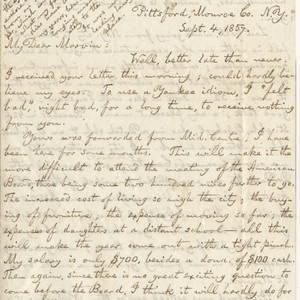 Pittsford, Monroe Co. N.Y.
Sept. 4, 1857.
My Dear Marvin:
Well, better late than never:
I received your letter this morning; could hardly be-
lieve my eyes. To use a Yankee idiom, I "felt
bad," right bad, for a long time, to receive nothing
from you.
Yours was forwarded from ; I have
been here for some months. This will make it the
more difficult to attend the meeting of the American
Board, there being some two hundred miles farther to go.
The increased cost of living so nigh the city; the buy-
ing of furniture; the expense of moving so far; the
expenses of daughter at a distant school — all this
will make the year come out with a tight pinch.
My salary is only $700, besides a don. of $100 cash.
Then again, since there is no great exciting question to
come before the Board, I think it will hardly do for